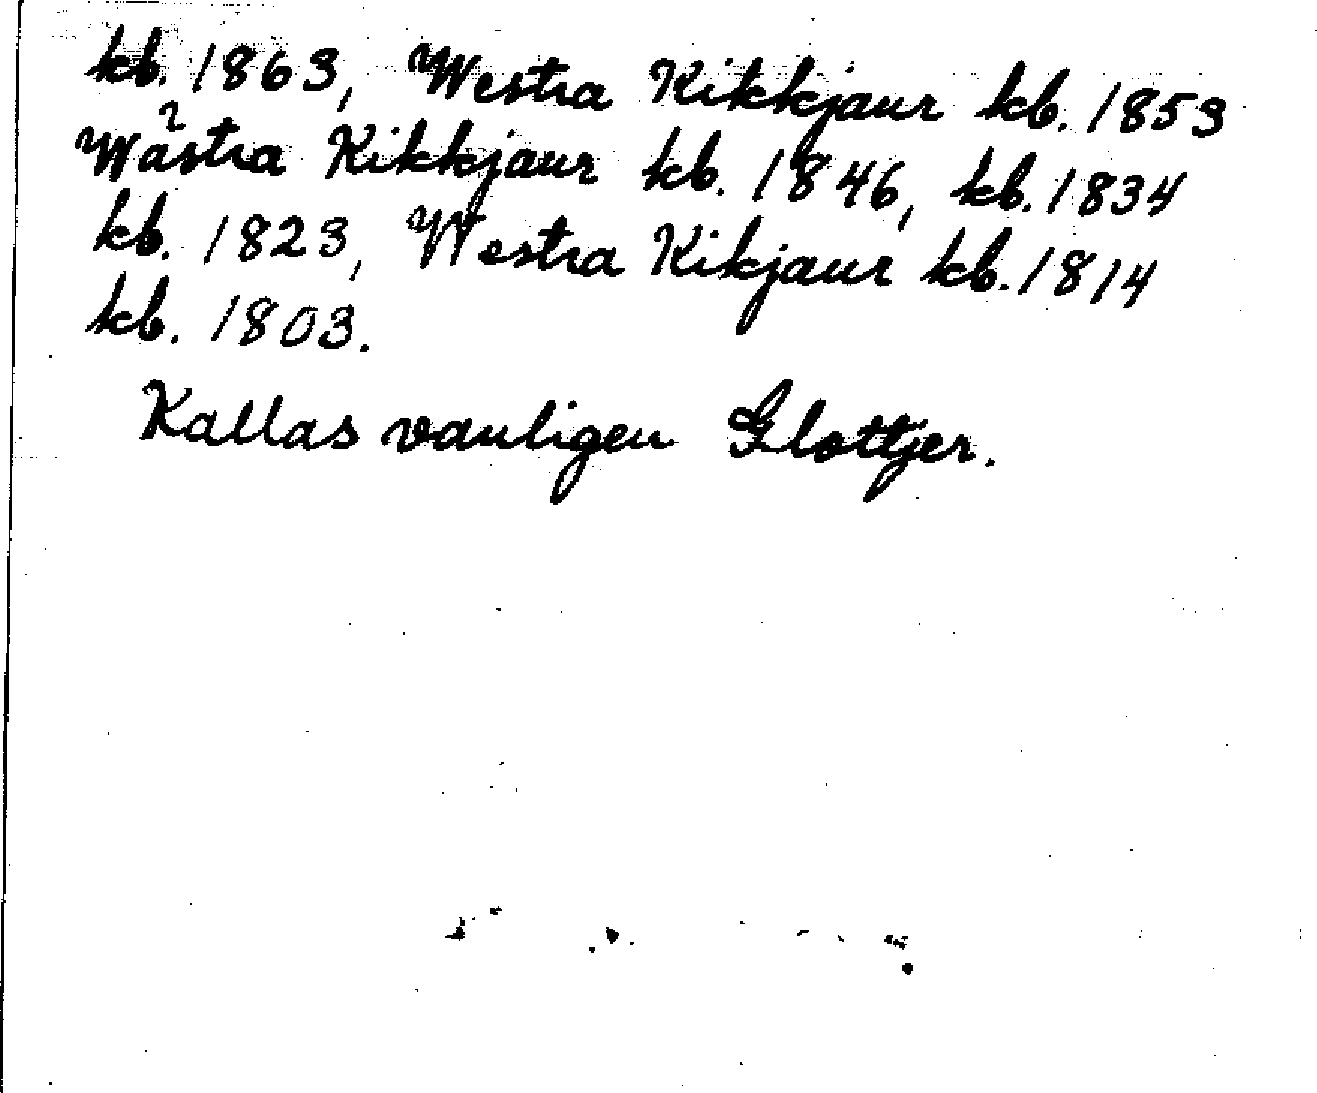 kb. 1863, Westra Kikkjaur kb. 1853
Wästra Kikkjaur kb. 1846, kb. 1834
kb. 1823, Westra Kikjaur kb. 1814
kb. 1803.
Kallas vanligen Glottjer.